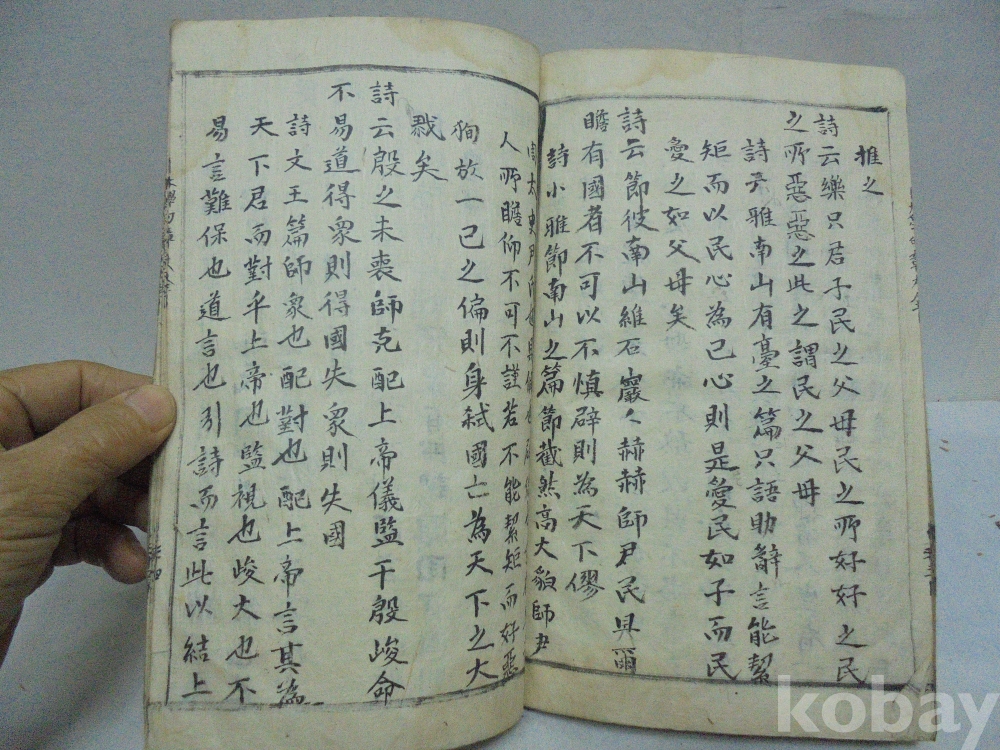 推之
詩云樂只君子民之父母民之所好好之民
之所惡惡之此之謂民之父母
詩小雅南山有臺之篇只語助辭言能絜
矩而以民心為己心則是愛民如子而民
愛之如父母矣
詩云節彼南山維石巖々赫赫師尹民具爾
瞻有國者不可以不慎辟則為天下僇
詩小雅節南山之篇節截然高大貌師尹
周太史尹氏也具俱也
人所瞻仰不可不謹若不能絜矩而好惡
狥放一己之偏則身弑國亡為天下之大
戮矣
詩云殷之未喪師克配上帝儀監于殷峻命
不易道得衆則得國失衆則失國
詩文王篇師衆也配對也配上帝言其為
天下君而對乎上帝也監視也峻大也不
易言難保也道言也引詩而言此以結上
kobay